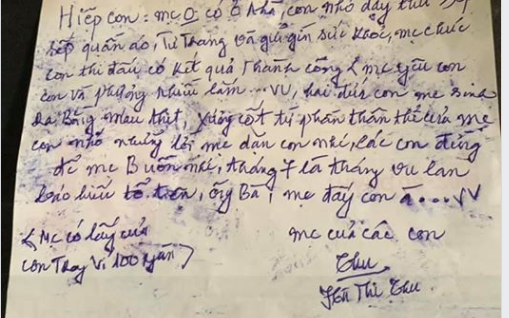 Hiếp con: mẹ O có ở Nhà, con nhớ dậy
Sếp quần áo, Tư Trang và giữ gìn sức khỏe, mẹ chúc
con thi đấu có kết quả Thành công & mẹ yêu con
con và phượng nhiều lắm...VV, hai đứa con mẹ sinh
Ra Bằng máu thịt, xương cốt tự phân thân thể của mẹ
con nhớ những lời mẹ dặn con nhé, các con đừng
để mẹ Buồn nhé, tháng 7 là tháng vu lan
báo hiếu tổ tiên, ông Bà, mẹ đấy con ạ...VV
(Mẹ có lấy của
con Trong Ví 100 ngàn)
mẹ của các con
Thu
Thị Thu